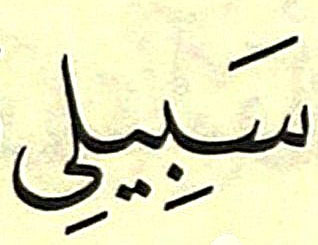 سَبِيلِي